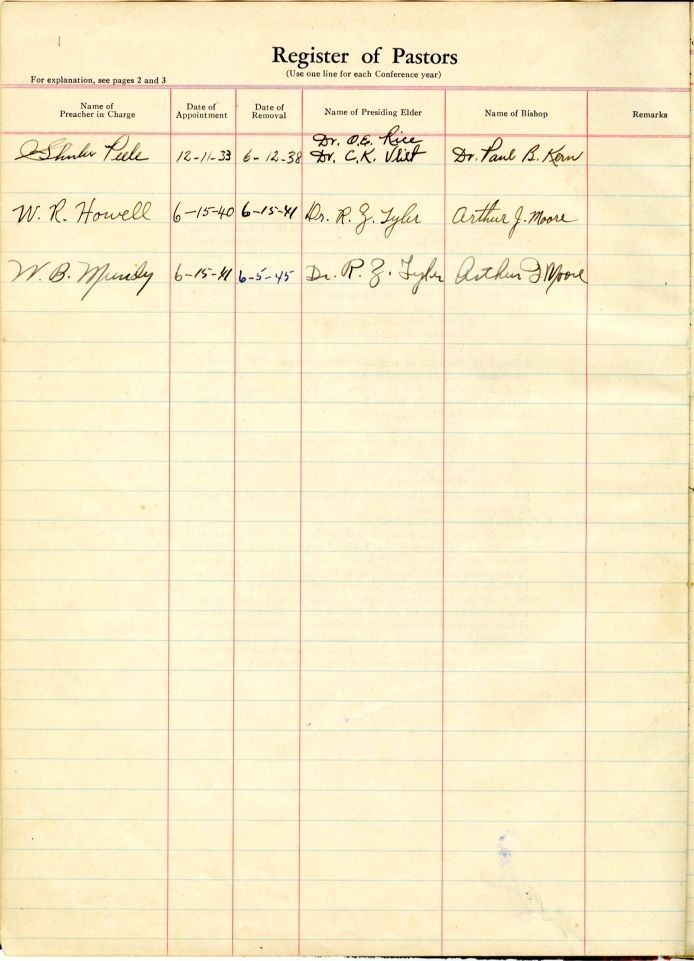 Register of Pastors
(Use one line for each Conference year)
For explanation, see pages 2 and 3
Name of Preacher in Charge Date of Appointment Date of Removal Name of Presiding Elder Name of Bishop Remarks
Dr. O.E. Rice
Shuler Peele 12-11-33 6-12-38 Dr. C.K. Vliet Dr. Paul B. Kern
W. R. Howell 6-15-40 6-15-41 Dr. R. Z. Tyler Arthur J. Moore
W. B. Mundy 6-15-41 6-5-45 Dr. R. Z. Tyler Arthur J Moore